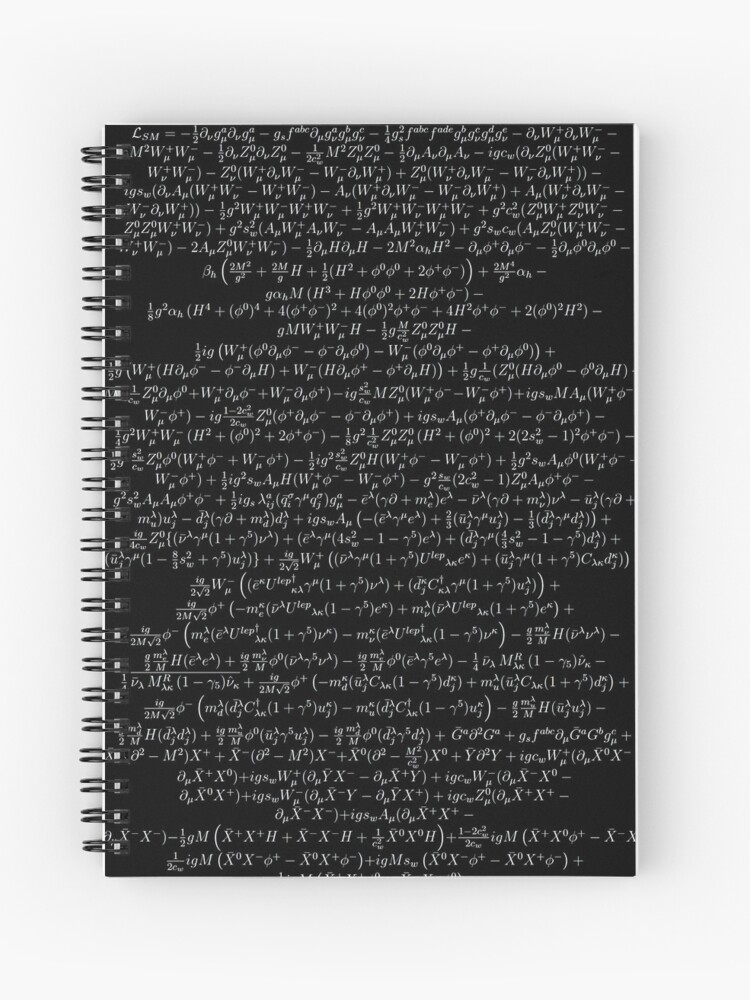 ℒ_{SM} = −½∂_νg^a_μ∂_νg^a_μ − g_sf^{abc}∂_μg^a_νg^b_μg^c_ν − ¼g²_sf^{abc}f^{ade}g^b_μg^c_νg^d_μg^e_ν − ∂_νW⁺_μ∂_νW⁻_μ −
M²W⁺_μW⁻_μ − ½∂_νZ⁰_μ∂_νZ⁰_μ − \frac{1}{2c²_w}M²Z⁰_μZ⁰_μ − ½∂_μA_ν∂_μA_ν − igc_w(∂_νZ⁰_μ(W⁺_μW⁻_ν −
W⁺_νW⁻_μ) − Z⁰_ν(W⁺_μ∂_νW⁻_μ − W⁻_μ∂_νW⁺_μ) + Z⁰_μ(W⁺_ν∂_νW⁻_μ − W⁻_ν∂_νW⁺_μ)) −
igs_w(∂_νA_μ(W⁺_μW⁻_ν − W⁺_νW⁻_μ) − A_ν(W⁺_μ∂_νW⁻_μ − W⁻_μ∂_νW⁺_μ) + A_μ(W⁺_ν∂_νW⁻_μ −
W⁻_ν∂_νW⁺_μ)) − ½g²W⁺_μW⁻_μW⁺_νW⁻_ν + ½g²W⁺_μW⁻_νW⁺_μW⁻_ν + g²c²_w(Z⁰_μW⁺_μZ⁰_νW⁻_ν −
Z⁰_μZ⁰_μW⁺_νW⁻_ν) + g²s²_w(A_μW⁺_μA_νW⁻_ν − A_μA_μW⁺_νW⁻_ν) + g²s_wc_w(A_μZ⁰_ν(W⁺_μW⁻_ν −
W⁺_νW⁻_μ) − 2A_μZ⁰_μW⁺_νW⁻_ν) − ½∂_μH∂_μH − 2M²α_hH² − ∂_μφ⁺∂_μφ⁻ − ½∂_μφ⁰∂_μφ⁰ −
β_h(\frac{2M²}{g²} + \frac{2M}{g}H + ½(H² + φ⁰φ⁰ + 2φ⁺φ⁻)) + \frac{2M⁴}{g²}α_h −
gα_hM(H³ + Hφ⁰φ⁰ + 2Hφ⁺φ⁻) −
⅛g²α_h(H⁴ + (φ⁰)⁴ + 4(φ⁺φ⁻)² + 4(φ⁰)²φ⁺φ⁻ + 4H²φ⁺φ⁻ + 2(φ⁰)²H²) −
gMW⁺_μW⁻_μH − ½g\frac{M}{c²_w}Z⁰_μZ⁰_μH −
½ig(W⁺_μ(φ⁰∂_μφ⁻ − φ⁻∂_μφ⁰) − W⁻_μ(φ⁰∂_μφ⁺ − φ⁺∂_μφ⁰)) +
½g(W⁺_μ(H∂_μφ⁻ − φ⁻∂_μH) + W⁻_μ(H∂_μφ⁺ − φ⁺∂_μH)) + ½g\frac{1}{c_w}(Z⁰_μ(H∂_μφ⁰ − φ⁰∂_μH) +
M(\frac{1}{c_w}Z⁰_μ∂_μφ⁰+W⁺_μ∂_μφ⁻+W⁻_μ∂_μφ⁺)−ig\frac{s²_w}{c_w}MZ⁰_μ(W⁺_μφ⁻−W⁻_μφ⁺)+igs_wMA_μ(W⁺_μφ⁻ −
W⁻_μφ⁺) − ig\frac{1−2c²_w}{2c_w}Z⁰_μ(φ⁺∂_μφ⁻ − φ⁻∂_μφ⁺) + igs_wA_μ(φ⁺∂_μφ⁻ − φ⁻∂_μφ⁺) −
¼g²W⁺_μW⁻_μ(H² + (φ⁰)² + 2φ⁺φ⁻) − ⅛g²\frac{1}{c²_w}Z⁰_μZ⁰_μ(H² + (φ⁰)² + 2(2s²_w − 1)²φ⁺φ⁻) −
½g²\frac{s²_w}{c_w}Z⁰_μφ⁰(W⁺_μφ⁻ + W⁻_μφ⁺) − ½ig²\frac{s²_w}{c_w}Z⁰_μH(W⁺_μφ⁻ − W⁻_μφ⁺) + ½g²s_wA_μφ⁰(W⁺_μφ⁻ +
W⁻_μφ⁺) + ½ig²s_wA_μH(W⁺_μφ⁻ − W⁻_μφ⁺) − g²\frac{s_w}{c_w}(2c²_w − 1)Z⁰_μA_μφ⁺φ⁻ −
g²s²_wA_μA_μφ⁺φ⁻ + ½ig_sλ^a_{ij}(q̄^σ_iγ^μq^σ_j)g^a_μ − ē^λ(γ∂ + m^λ_e)e^λ − ν̄^λ(γ∂ + m^λ_ν)ν^λ − ū^λ_j(γ∂ +
m^λ_u)u^λ_j − d̄^λ_j(γ∂ + m^λ_d)d^λ_j + igs_wA_μ(−(ē^λγ^μe^λ) + ⅔(ū^λ_jγ^μu^λ_j) − ⅓(d̄^λ_jγ^μd^λ_j)) +
\frac{ig}{4c_w}Z⁰_μ{(ν̄^λγ^μ(1 + γ⁵)ν^λ) + (ē^λγ^μ(4s²_w − 1 − γ⁵)e^λ) + (d̄^λ_jγ^μ(\frac{4}{3}s²_w − 1 − γ⁵)d^λ_j) +
(ū^λ_jγ^μ(1 − \frac{8}{3}s²_w + γ⁵)u^λ_j)} + \frac{ig}{2√2}W⁺_μ((ν̄^λγ^μ(1 + γ⁵)U^{lep}_{λκ}e^κ) + (ū^λ_jγ^μ(1 + γ⁵)C_{λκ}d^κ_j)) +
\frac{ig}{2√2}W⁻_μ((ē^κU^{lep†}_{κλ}γ^μ(1 + γ⁵)ν^λ) + (d̄^κ_jC^†_{κλ}γ^μ(1 + γ⁵)u^λ_j)) +
\frac{ig}{2M√2}φ⁺(−m^κ_e(ν̄^λU^{lep}_{λκ}(1 − γ⁵)e^κ) + m^λ_ν(ν̄^λU^{lep}_{λκ}(1 + γ⁵)e^κ) +
\frac{ig}{2M√2}φ⁻(m^λ_e(ē^λU^{lep†}_{λκ}(1 + γ⁵)ν^κ) − m^κ_ν(ē^λU^{lep†}_{λκ}(1 − γ⁵)ν^κ) − \frac{g}{2}\frac{m^λ_ν}{M}H(ν̄^λν^λ) −
\frac{g}{2}\frac{m^λ_e}{M}H(ē^λe^λ) + \frac{ig}{2}\frac{m^λ_ν}{M}φ⁰(ν̄^λγ⁵ν^λ) − \frac{ig}{2}\frac{m^λ_e}{M}φ⁰(ē^λγ⁵e^λ) − ¼ν̄_λM^R_{λκ}(1 − γ₅)ν̂_κ −
¼\overline{ν̄_λM^R_{λκ}(1 − γ₅)ν̂_κ} + \frac{ig}{2M√2}φ⁺(−m^κ_d(ū^λ_jC_{λκ}(1 − γ⁵)d^κ_j) + m^λ_u(ū^λ_jC_{λκ}(1 + γ⁵)d^κ_j) +
\frac{ig}{2M√2}φ⁻(m^λ_d(d̄^λ_jC^†_{λκ}(1 + γ⁵)u^κ_j) − m^κ_u(d̄^λ_jC^†_{λκ}(1 − γ⁵)u^κ_j) − \frac{g}{2}\frac{m^λ_u}{M}H(ū^λ_ju^λ_j) −
\frac{g}{2}\frac{m^λ_d}{M}H(d̄^λ_jd^λ_j) + \frac{ig}{2}\frac{m^λ_u}{M}φ⁰(ū^λ_jγ⁵u^λ_j) − \frac{ig}{2}\frac{m^λ_d}{M}φ⁰(d̄^λ_jγ⁵d^λ_j) + Ḡ^a∂²G^a + g_sf^{abc}∂_μḠ^aG^bg^c_μ +
X̄⁺(∂² − M²)X⁺ + X̄⁻(∂² − M²)X⁻ + X̄⁰(∂² − \frac{M²}{c²_w})X⁰ + Ȳ∂²Y + igc_wW⁺_μ(∂_μX̄⁰X⁻ −
∂_μX̄⁺X⁰)+igs_wW⁺_μ(∂_μȲX⁻ − ∂_μX̄⁺Y) + igc_wW⁻_μ(∂_μX̄⁻X⁰ −
∂_μX̄⁰X⁺)+igs_wW⁻_μ(∂_μX̄⁻Y − ∂_μȲX⁺) + igc_wZ⁰_μ(∂_μX̄⁺X⁺ −
∂_μX̄⁻X⁻)+igs_wA_μ(∂_μX̄⁺X⁺ −
∂_μX̄⁻X⁻)−½gM(X̄⁺X⁺H + X̄⁻X⁻H + \frac{1}{c²_w}X̄⁰X⁰H)+\frac{1−2c²_w}{2c_w}igM(X̄⁺X⁰φ⁺ − X̄⁻X
\frac{1}{2c_w}igM(X̄⁰X⁻φ⁺ − X̄⁰X⁺φ⁻)+igMs_w(X̄⁰X⁻φ⁺ − X̄⁰X⁺φ⁻) +